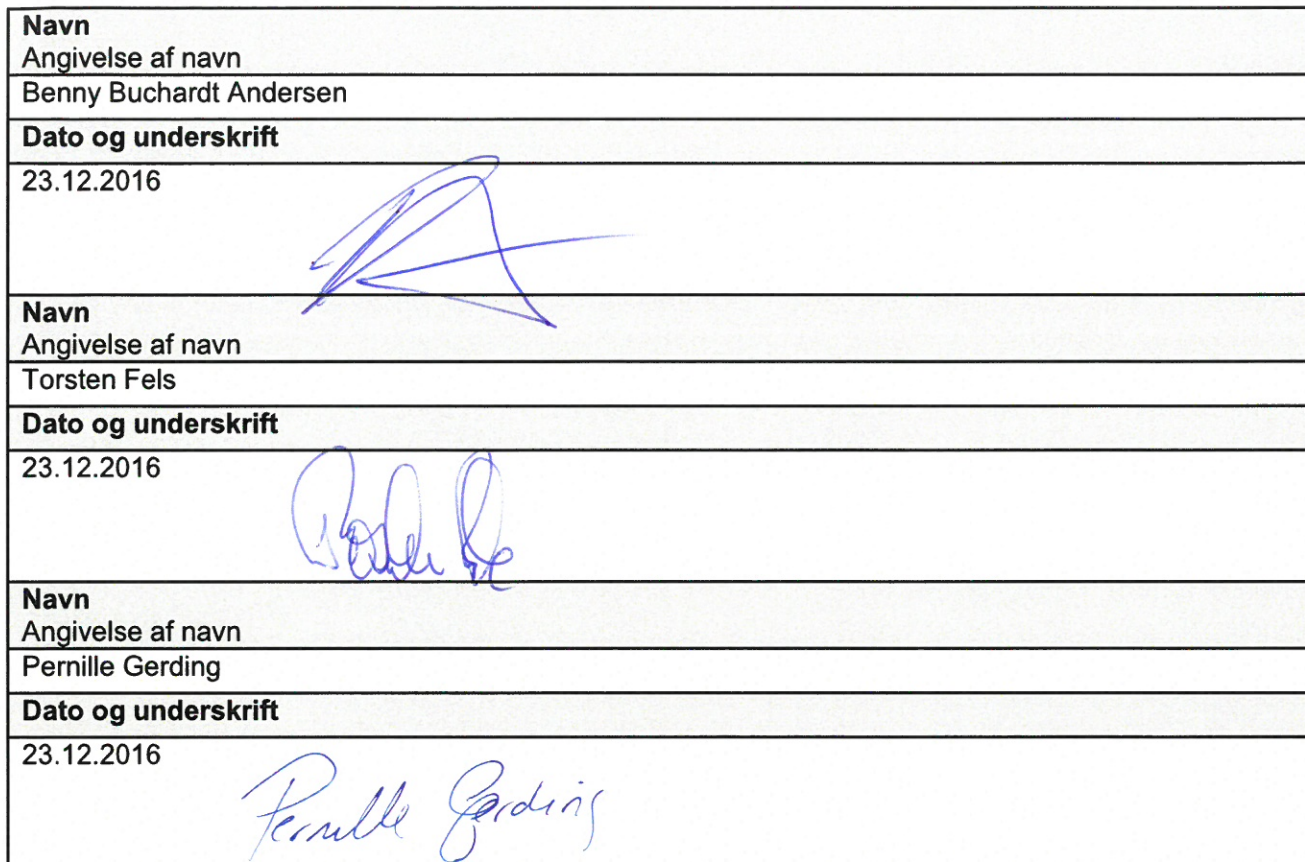 Navn
Angivelse af navn
Benny Buchardt Andersen
Dato og underskrift
23.12.2016
Navn
Angivelse af navn
Torsten Fels
Dato og underskrift
23.12.2016
Navn
Angivelse af navn
Pernille Gerding
Dato og underskrift
23.12.2016
Pernille Gerding